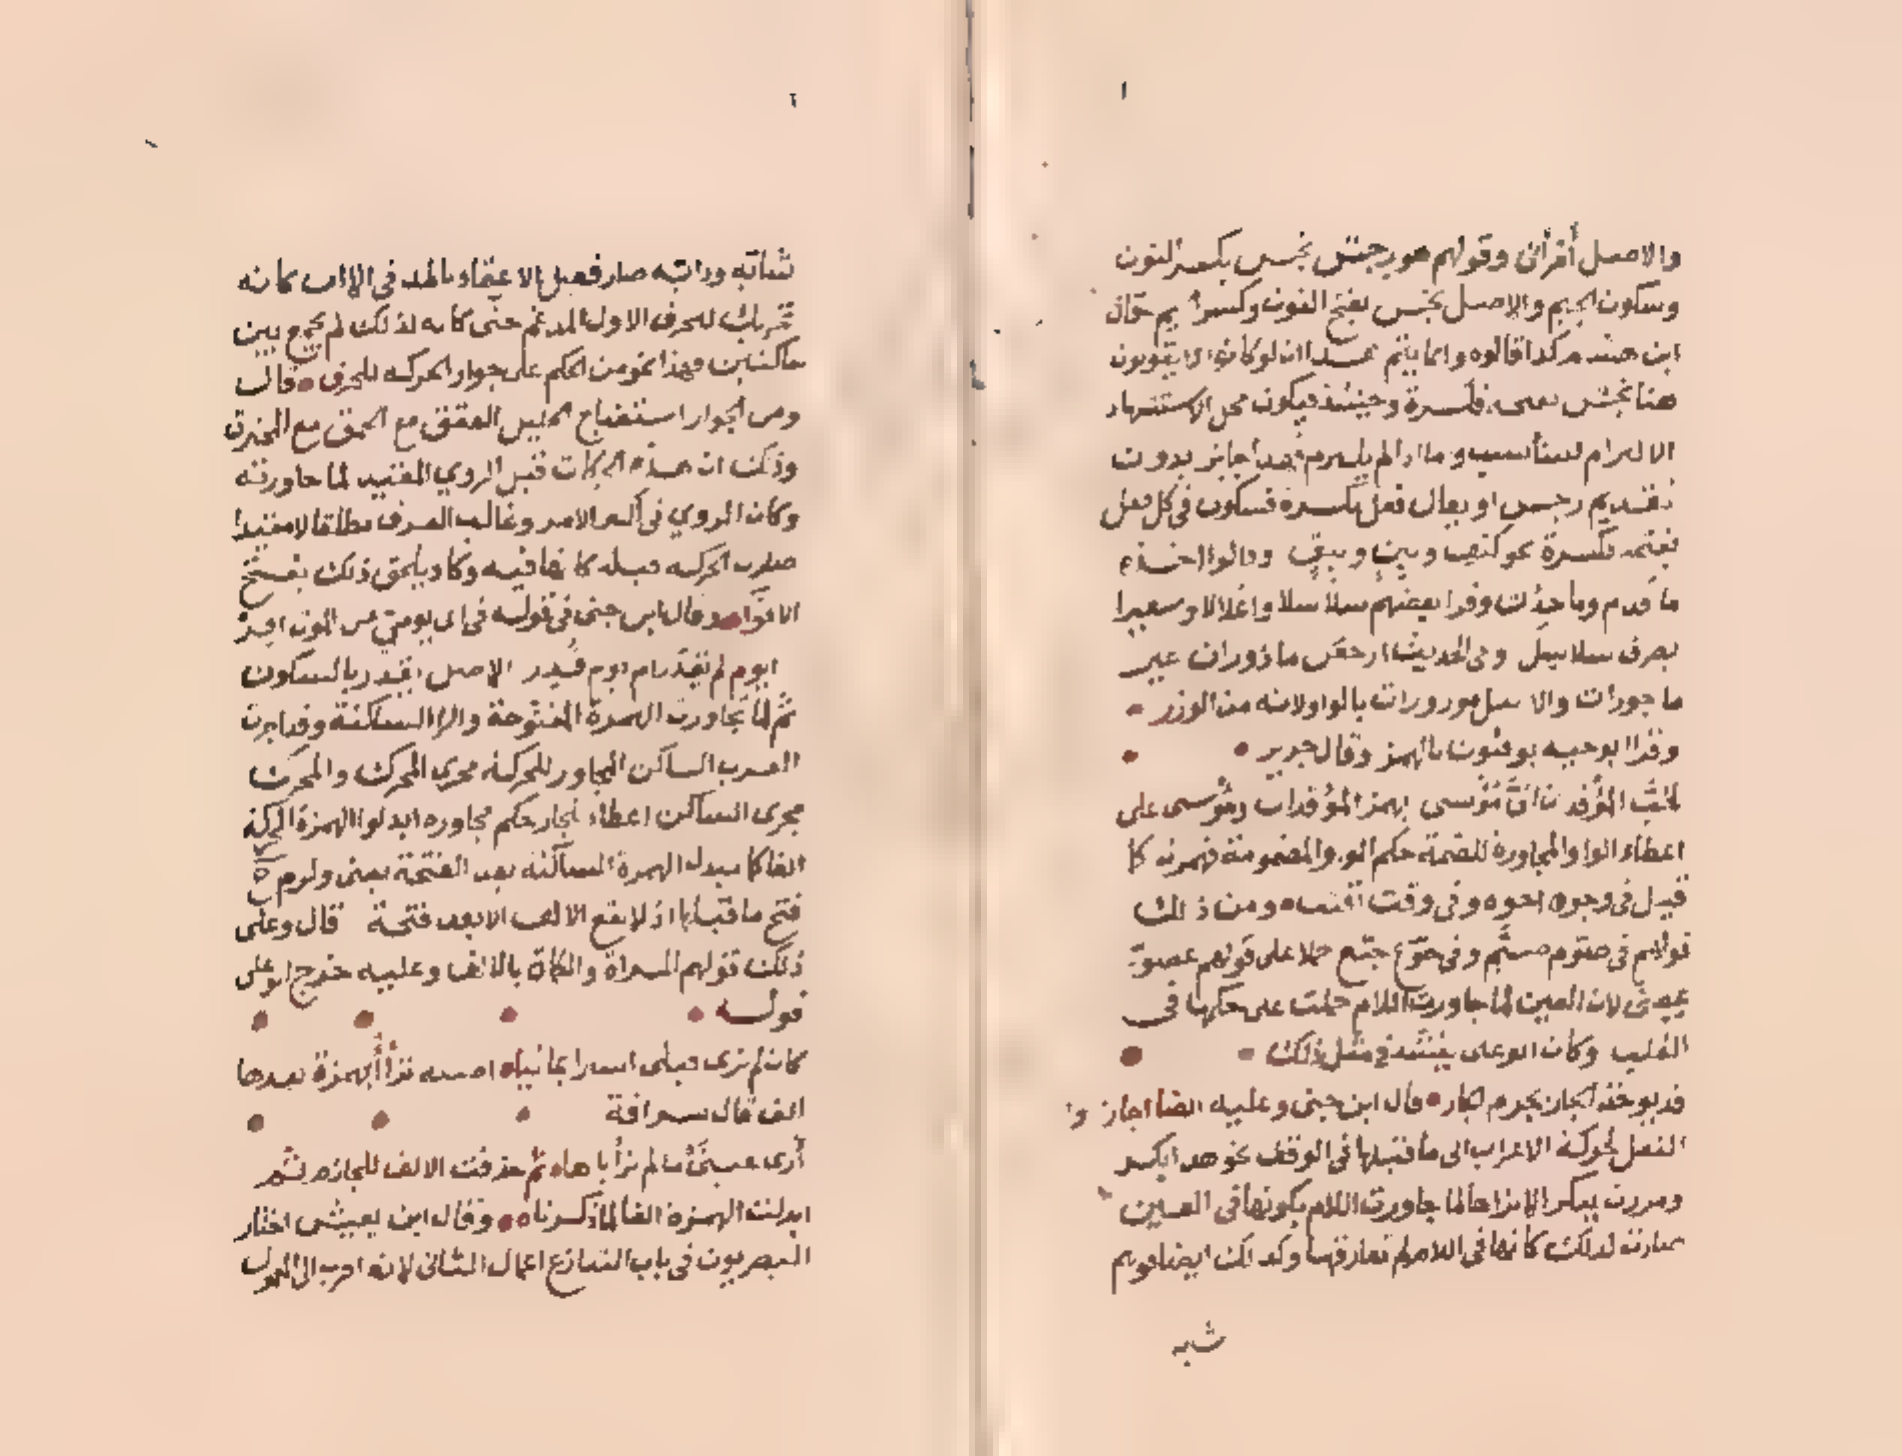 والاصل أقرأني وقولهم هو رجس نجس بكسر النون
وسكون الجيم والاصل نجس بفتح النون وكسر الجيم
قالوه وانما يتم هذا ان لو كانوا لا يقولون
هنا نجس وحينئذ فيكون محل الاستشهاد
الالتزام للتناسب واما اذا لم يلتزم فهذا جائز بدون
تقديم رجس او يقال فعل بكسرة فسكون في كل فعل
بفتحة فكسرة نحو كتف وقالوا اخذه
ما قدم وما حدث وقرا بعضهم سلاسلا واغلالا وسعيرا
بصرف سلاسل وفي الحديث ارجعن مازورات غير
ماجورات والاصل موزورات بالواو لانه من الوزر
وقرا ابو حيه يوقنون بالهمز وقال جرير
لحب المؤقدان الى مؤسى بهمز المؤقدات ومؤسى على
اعطاء الواو المجاورة للضمة حكم الواو المضمومة فهمزت كما
قيل في وجوه اجوه وفي وقتت اقتت ومن ذلك
قولهم في صوم صيم وفي جوع جيع حملا على قولهم في عصو
عصي لان العين لما جاورت اللام حملت على حكمها في
القلب وكان ابو علي ينشد في مثل ذلك
قد يوخذ الجار بجرم الجار قال ابن جني وعليه ايضا اجازوا
النقل لحركة الاعراب الى ما قبلها في الوقف نحو هذا بكر
ومررت ببكر الا تراها لما جاورت اللام بكونها في العين
صارت لذلك كانها في اللام لم تفارقها وكذلك ايضا قولهم
شبه
شابة ودابة صار فصل الاعتماد بالمد في الالف كانه
تحريك للحرف الاول المدغم حتى كانه لذلك لم يجمع بين
ساكنين فهذا نحو من الحكم على جوار الحركة للحرف قال
ومن الجوار استقباح الخليل العقق مع الحمق مع المخترق
وذلك ان هذه الحركات قبل الروي المقيد لما جاورته
وكان الروي في اكثر الامر وغالب العرف مطلقا لا مقيدا
صارت الحركة قبله كانها فيه وكاد يلحق ذلك بقبح
الاقواء وقال ابن جني في قوله في اي يومي من الموت افر
ايوم لم يقدر ام يوم قدر الاصل يقدر بالسكون
ثم لما تجاورت الهمزة المفتوحة والراء الساكنة وقد اجرت
العرب الساكن المجاور للمحركة مجرى المحرك والمحرك
مجرى الساكن اعطاء للجار حكم مجاوره ابدلوا الهمزة المحركة
الفا كما تبدل الهمزة الساكنة بعد الفتحة يعني ولزم ح
فتح ما قبلها اذ لا يقع الالف الا بعد فتحة قال وعلى
ذلك قولهم المراة والكماة بالالف وعليه خرج ابو علي
قوله
كان لم ترى قبلي اسيرا يمانيا اصله ترأى بهمزة بعدها
الف كما قال سراقة
أرى عيني ما لم ترأياه ثم حذفت الالف للجازم ثم
ابدلت الهمزة الفا لما ذكرنا وقال ابن يعيش اختار
البصريون في باب التنازع اعمال الثاني لانه اقرب الى المعمول